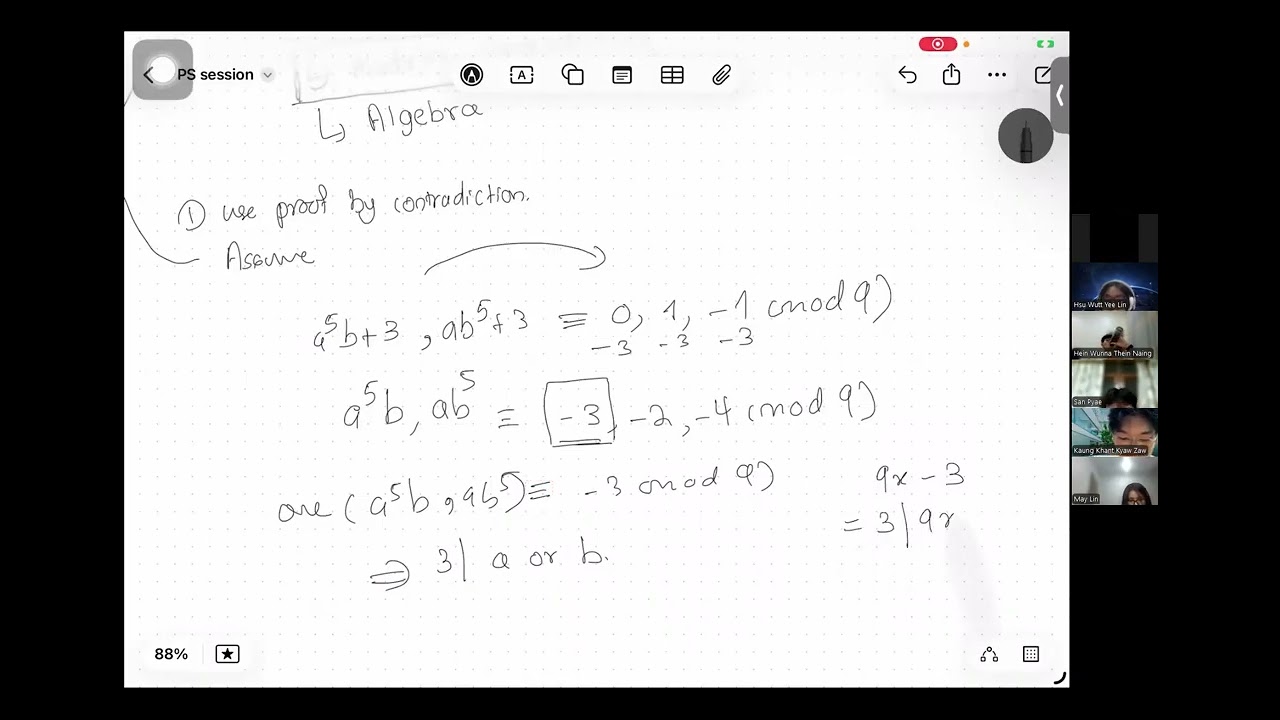 PS session
A
↳ Algebra
① use proof by contradiction.
Assume
a⁵b+3, ab⁵+3 ≡ 0, 1, -1 (mod 9)
-3 -3 -3
a⁵b, ab⁵ ≡ -3, -2, -4 (mod 9)
one (a⁵b, ab⁵) ≡ -3 (mod 9)
9x - 3
= 3 | 9x
⇒ 3 | a or b.
88%
Hsu Wutt Yee Lin
Hein Wunna Thein Naing
San Pyae
Kaung Khant Kyaw Zaw
May Lin